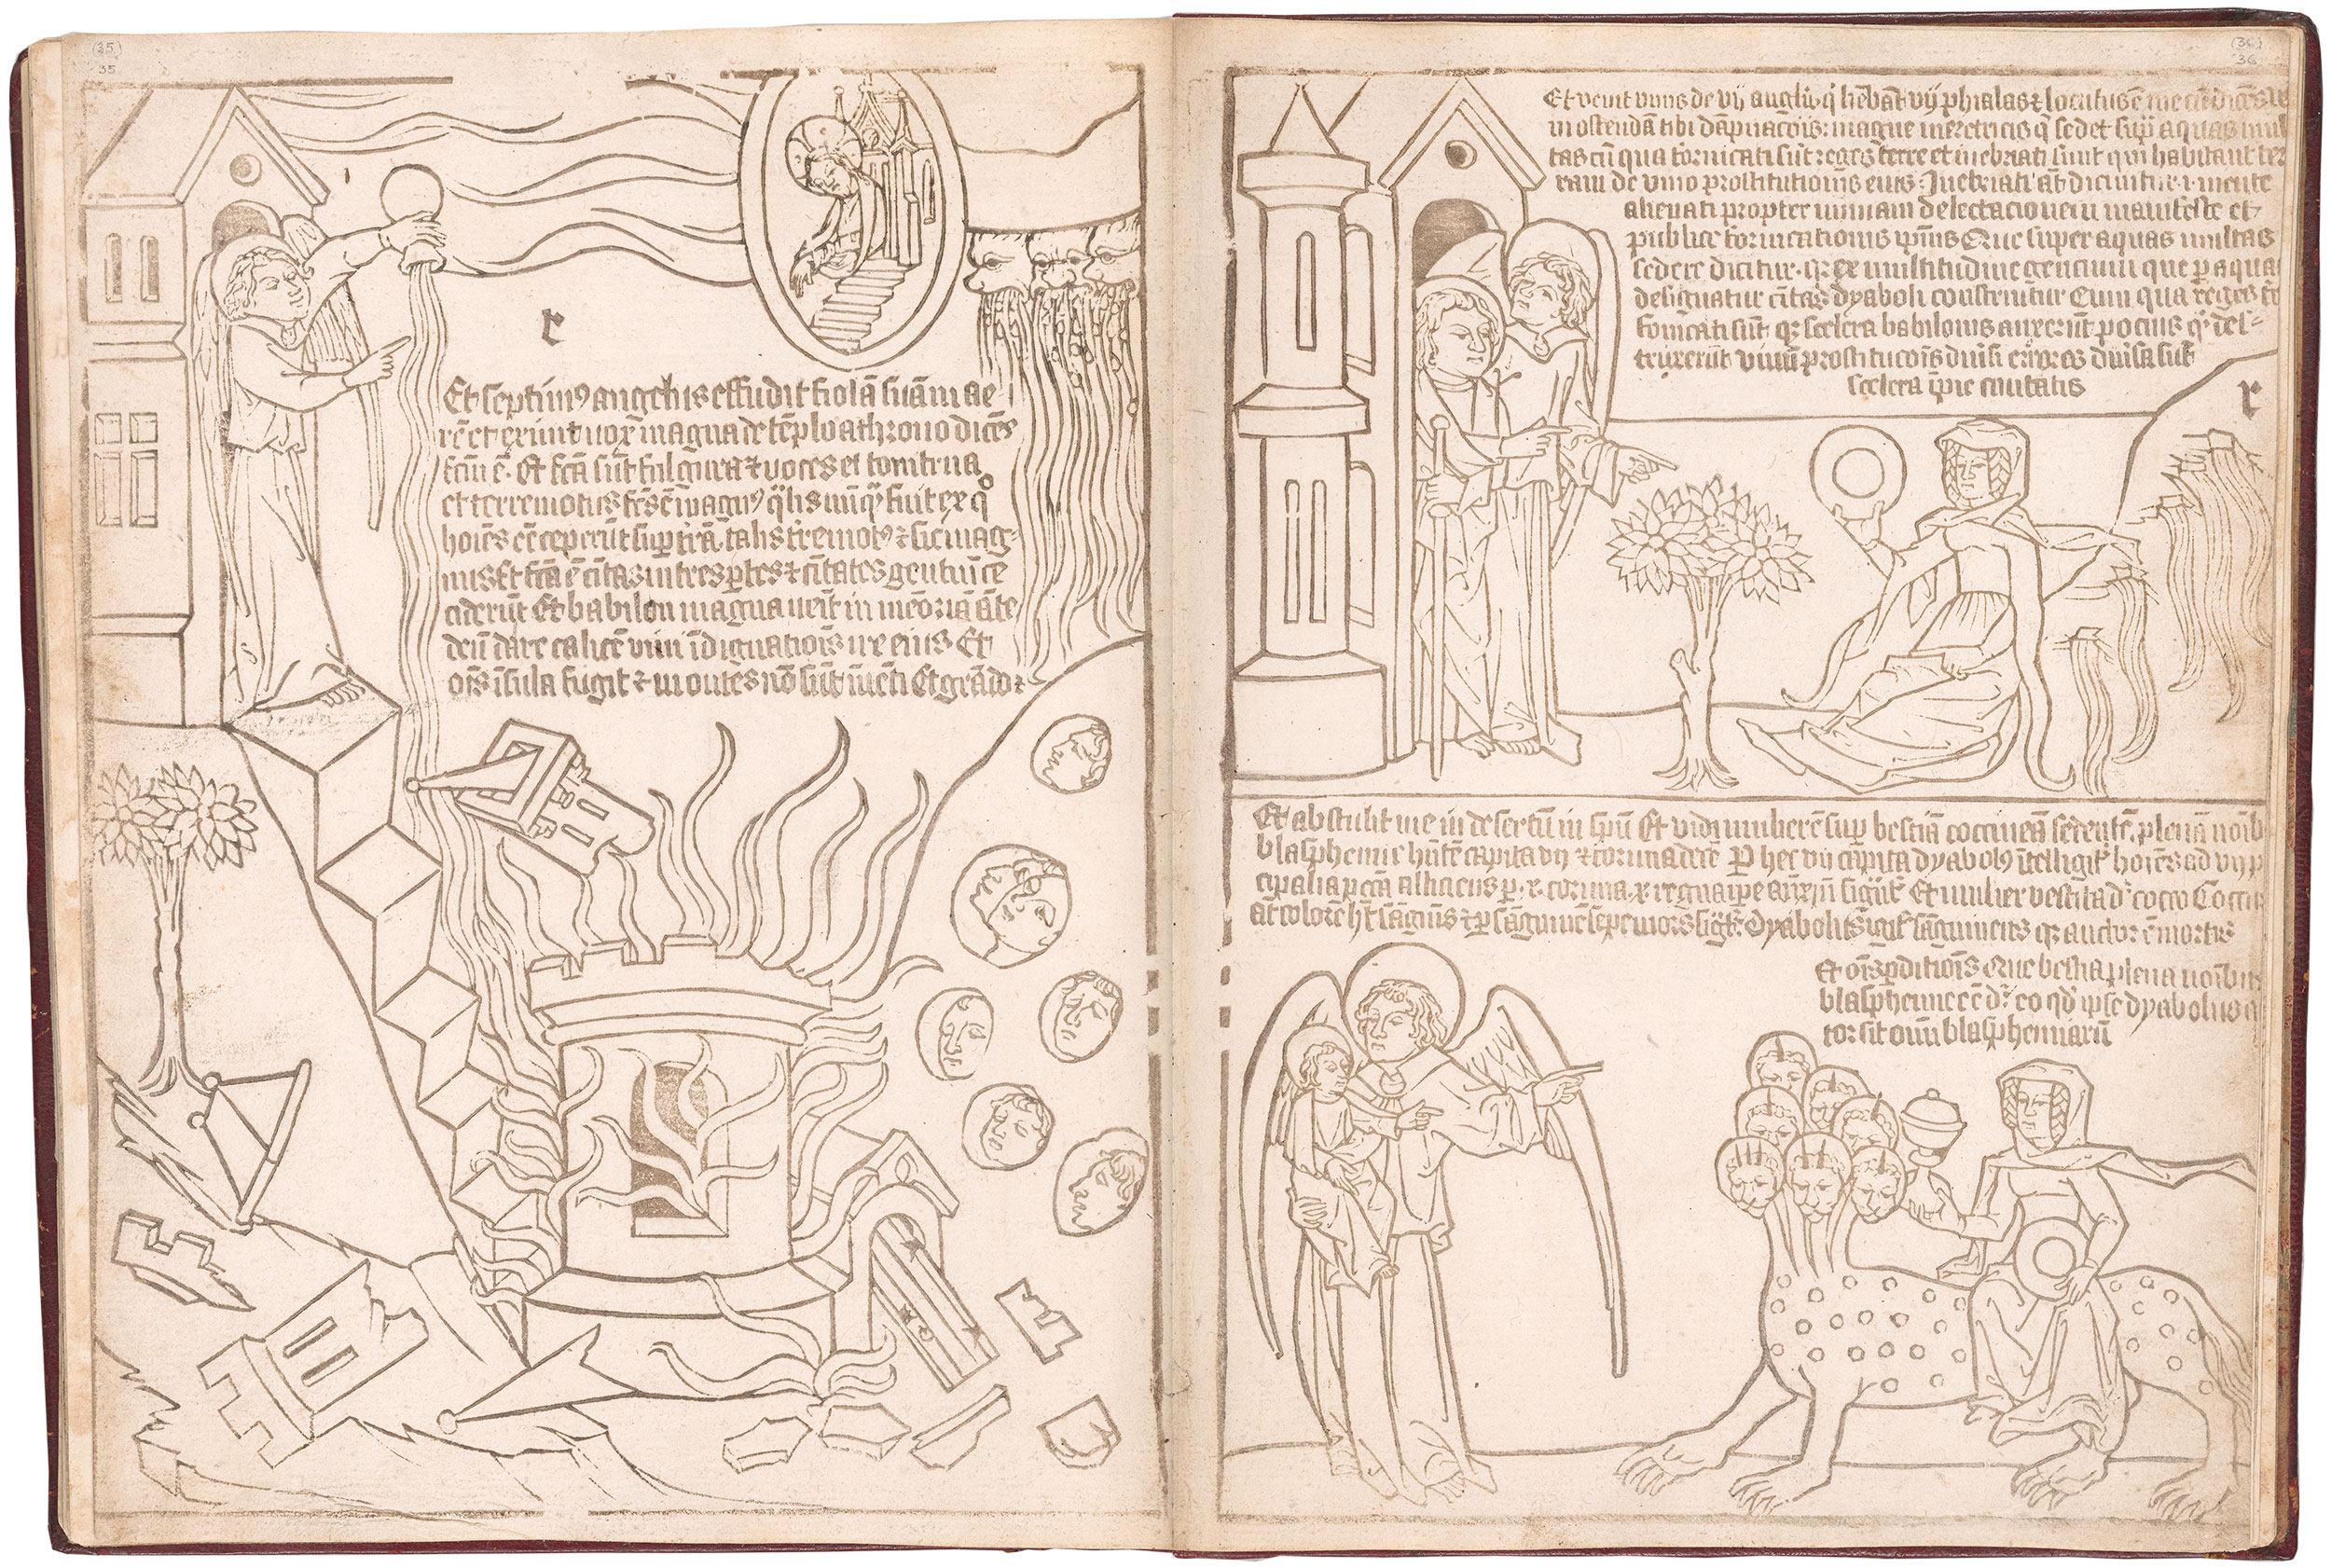 (35)
35
r
Et septim⁹ angelus effudit fiolā suā in ae
rē et exiuit uox magna de tēplo a throno dicēs
fc̄m ē. Et fc̄a sūt fulgura ⁊ uoces et tonitrua
et terremotus magn⁹ q̄lis nūq̄ fuit ex qͦ
hoīes ceperūt sup trā talis tremot⁹ ⁊ sic mag
nus Et fc̄a ē ciūtas in tres ptes ⁊ ciūtates gentiū ce
ciderūt Et babilon magna uēit in meōriā āte
deū dare calicē vini īdignatiōis ire eius Et
oīs īsula fugit ⁊ montes nō sūt īuēti Et grādo
(36)
36
Et venit vnus de vij angl'is q̄ hēbāt vij phialas ⁊ locutus ē mecū dicēs ve
ni ostendā tibi dāpnacōis magne meretricis q̄ sedet sup aquas mul
tas cū qua fornicati sūt reges terre et inebriati sunt qui habitant ter
ram de vino prostitutionis eius Inebriati āt dicuntur .i. mente
alienati propter nimiam delectacionem manifeste et
publice fornicationis ipīus Que super aquas multas
sedere dicitur. qz ex multitudine gencium que p aqua
designatur ciūtas dyaboli construitur Cum qua reges tr̄e
fonicati sūt qz scelera babilonis auxerūt pocius q̄ des
truxerūt vinū prostitucōis
scelera ciuitatis
r
Et abstulit me in desertū in spū Et vidi mulierē sup bestiā coccineā sedentē plenā noīb
blasphemie hn̄tē capita vij ⁊ cornua decē P hec vij capita dyabol⁹ ītelligit hoīes ad vij p
cipalia pctā alliciens p .x. cornua .x. regna Et mulier vestita dʳ cocco Coccū
āt colorē hʒ sāguis ⁊ p sāguinē sepe mors Dyabol⁹ sāguineus qz auctor ē mortis
Et oīs pditiōis Que bestia plena noībus
blasphemie eē dʳ eo qd ipse dyabolus a
tor sit oīm blasphemiarū